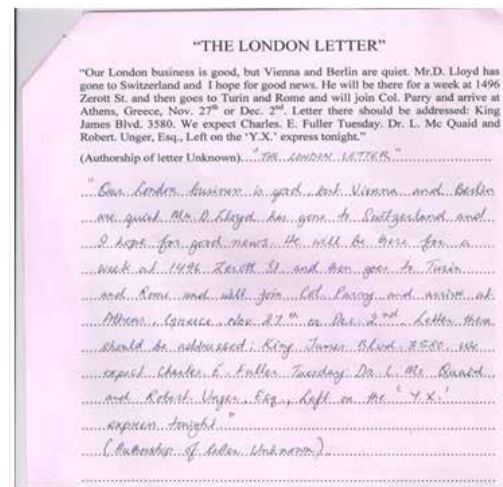 "THE LONDON LETTER"
"Our London business is good, but Vienna and Berlin are quiet. Mr.D. Lloyd has
gone to Switzerland and I hope for good news. He will be there for a week at 1496
Zerott St. and then goes to Turin and Rome and will join Col. Parry and arrive at
Athens, Greece, Nov. 27th or Dec. 2nd. Letter there should be addressed: King
James Blvd. 3580. We expect Charles. E. Fuller Tuesday. Dr. L. Mc Quaid and
Robert. Unger, Esq., Left on the 'Y.X.' express tonight."
(Authorship of letter Unknown) "THE LONDON LETTER"
"Our London business is good but Vienna and Berlin
are quiet. Mr. D. Lloyd has gone to Switzerland and
I hope for good news. He will be there for a
week at 1496 Zerott St. and then goes to Turin
and Rome and will join Col. Parry and arrive at
Athens, Greece, Nov. 27th or Dec. 2nd. Letter there
should be addressed: King James Blvd. 3580. We
expect Charles. E. Fuller Tuesday. Dr. L. Mc Quaid
and Robert. Unger, Esq., Left on the 'Y.X.'
express tonight."
(Authorship of letter Unknown)